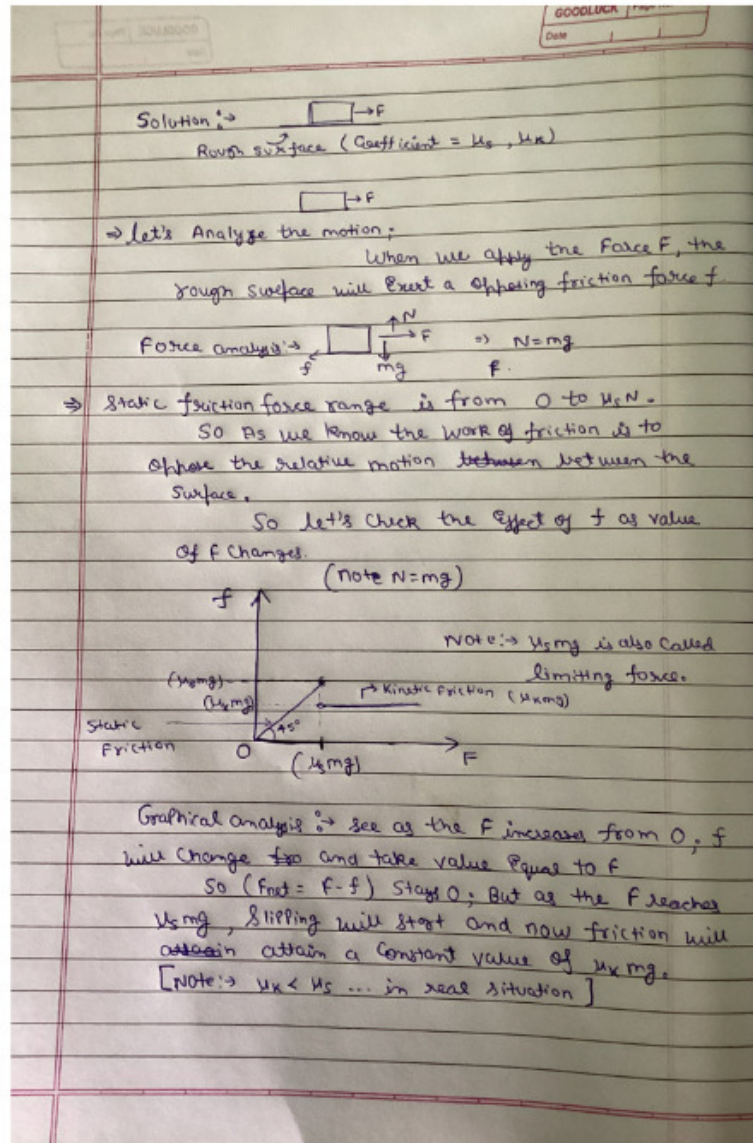 GOODLUCK
Date
Solution :→ F
Rough surface (Coefficient = μs, μk)
F
⇒ let's Analyze the motion;
When we apply the Force F, the
rough surface will Exert a opposing friction force f.
Force analysis :→ N F f mg ⇒ N=mg
F.
⇒ Static friction force range is from 0 to μsN.
So As we know the work of friction is to
oppose the relative motion between between the
Surface.
So let's check the Effect of f as value
of F Changes.
(note N=mg)
f
Note :→ μsmg is also called
limiting force.
(μsmg)
(μkmg)
→ Kinetic Friction (μkmg)
Static
Friction
45°
O
(μsmg)
F
Graphical analysis :→ see as the F increases from 0, f
will change fro and take value Equal to F
So (Fnet = F-f) Stays 0; But as the F reaches
μsmg, Slipping will start and now friction will
attain attain a Constant value of μkmg.
[Note :→ μk < μs ... in real situation]